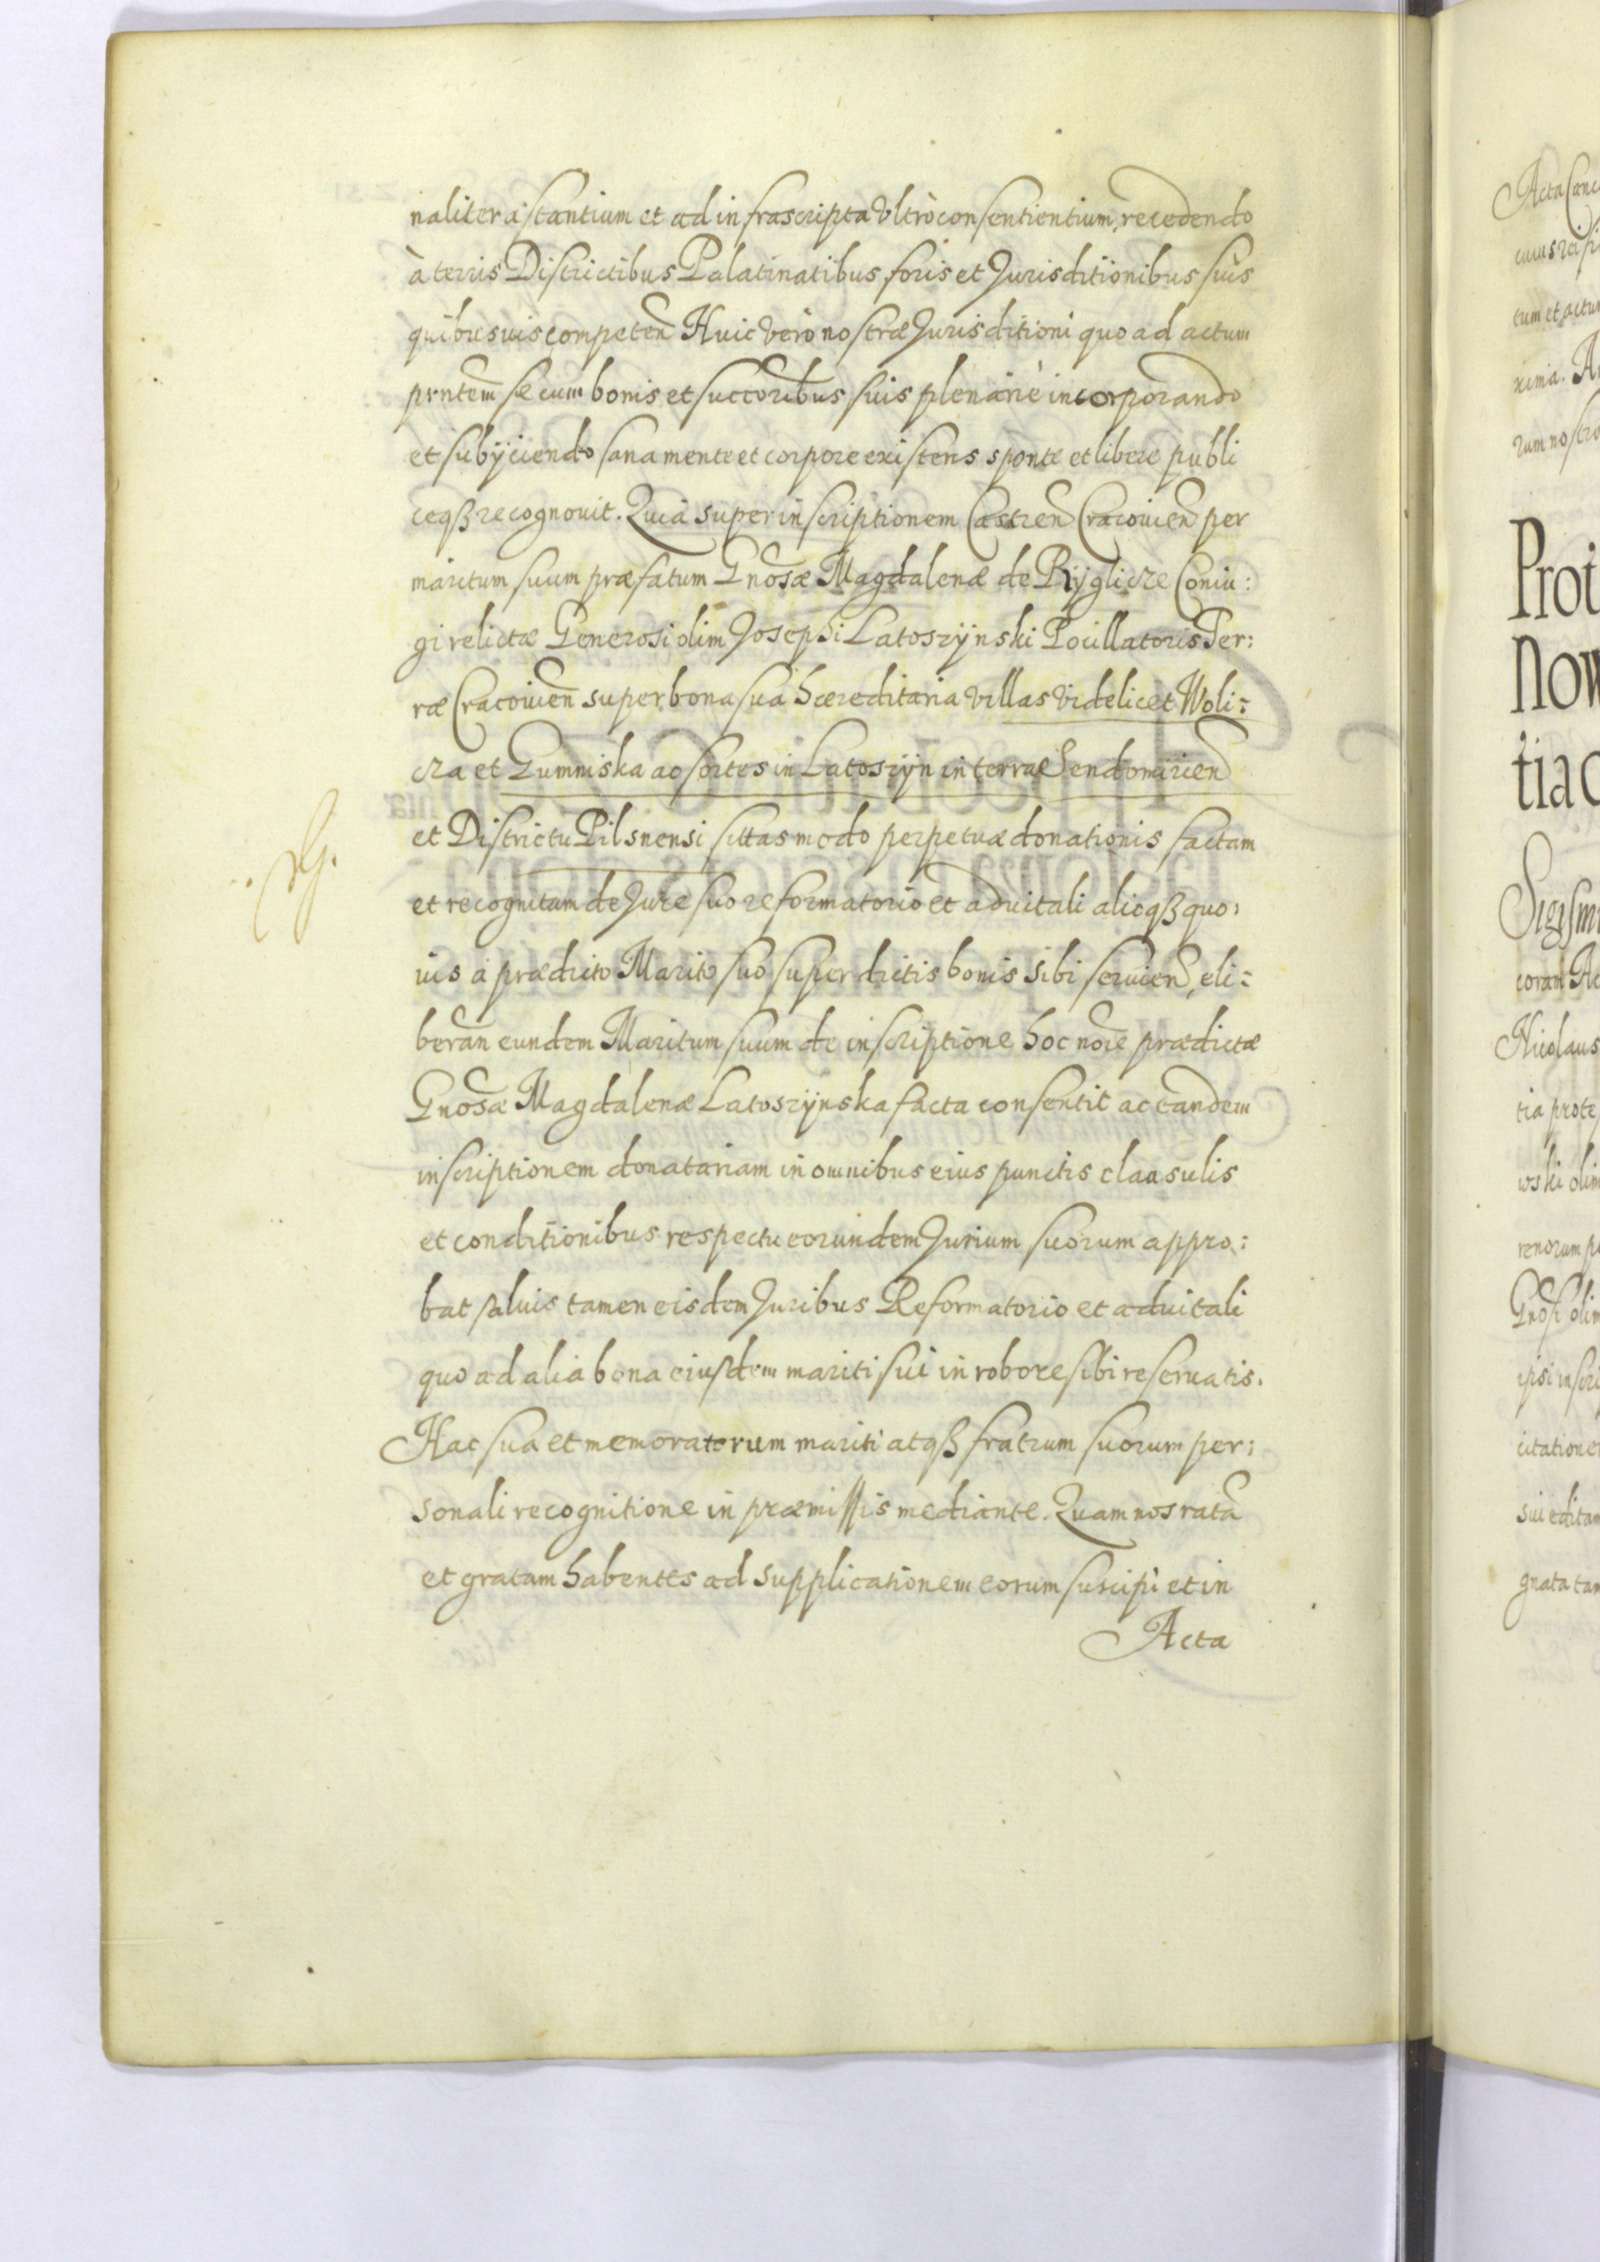 naliter astantium et ad infrascripta Vltrò consentientium, recedendo
à terris Districtibus Palatinatibus foris et Jurisditionibus suis
quibusuis competen Huic verò nostræ Jurisditioni quo ad actum
prntem se cum bonis et succoribus suis plenariè incorporando
et subijciendo sana mente et corpore existens sponte et libere publi
ceqß recognouit. Quia super inscriptionem Castren Cracouien per
maritum suum præfatum Gnosæ Magdalenæ de Ryglicze Coniu:
gi relictæ Generosi olim Josephi Latoszÿnski Pocillatoris Ter:
ræ Cracouien super bona sua hæreditaria villas videlicet Woli:
cza et Gumniska ac sortes in Latoszÿn in terra Sendomirien
et Districtu Pilsnensi sittas modo perpetuæ donationis factam
et recognitam de Jure suo reformatorio et aduitali alioqß quo:
uis a prædicto Marito suo super dictis bonis sibi seruien, eli:
beran eundem Maritum suum de inscriptione hoc noie prædictæ
Gnosæ Magdalenæ Latoszÿnska facta consentit ac tandem
inscriptionem donatariam in omnibus eius punctis clausulis
et conditionibus respectu eorundem Jurium suorum appro:
bat saluis tamen eisdem Juribus Reformatorio et aduitali
quo ad alia bona eiusdem mariti sui in robore sibi reseruatis.
Hac sua et memoratorum mariti atqß fratrum suorum per:
sonali recognitione in præmissis mediante. Quam nos rata
et gratam habentes ad supplicationem eorum suscipi et in
Acta
Acta Canc
tum et actu
xima. A
rum nostro
Prot
Now
tia c
Sigism
coram Ac
Nicolaus
tia prote
wski olim
renorum p
Gnosi olim
ipsi inscri
citatione
sui editam
gnata tam